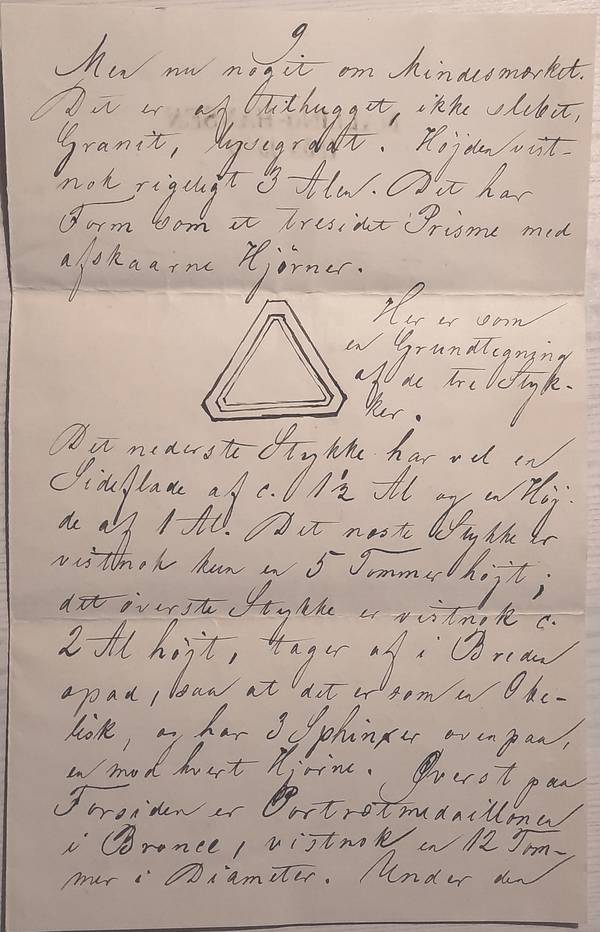 9
Men nu noget om Mindesmærket.
Det er af tilhugget, ikke slebet,
Granit, lysegraat. Højden vist-
nok rigeligt 3 Alen. Det har
Form som et tresidet Prisme med
afskaarne Hjørner.
Her er som
en Grundtegning
af de tre Styk-
ker.
Det nederste Stykke har vel en
Sideflade af c. 1½ Al og en Høj-
de af 1 Al. Det næste Stykke er
vistnok kun en 5 Tommer højt;
det øverste Stykke er vistnok c.
2 Al højt, tager af i Breden
opad, saa at det er som en Obe-
lisk, og har 3 Sphinxer ovenpaa,
en mod hvert Hjørne. Øverst paa
Forsiden er Portrætmedaillonen
i Bronce, vistnok en 12 Tom-
mer i Diameter. Under den